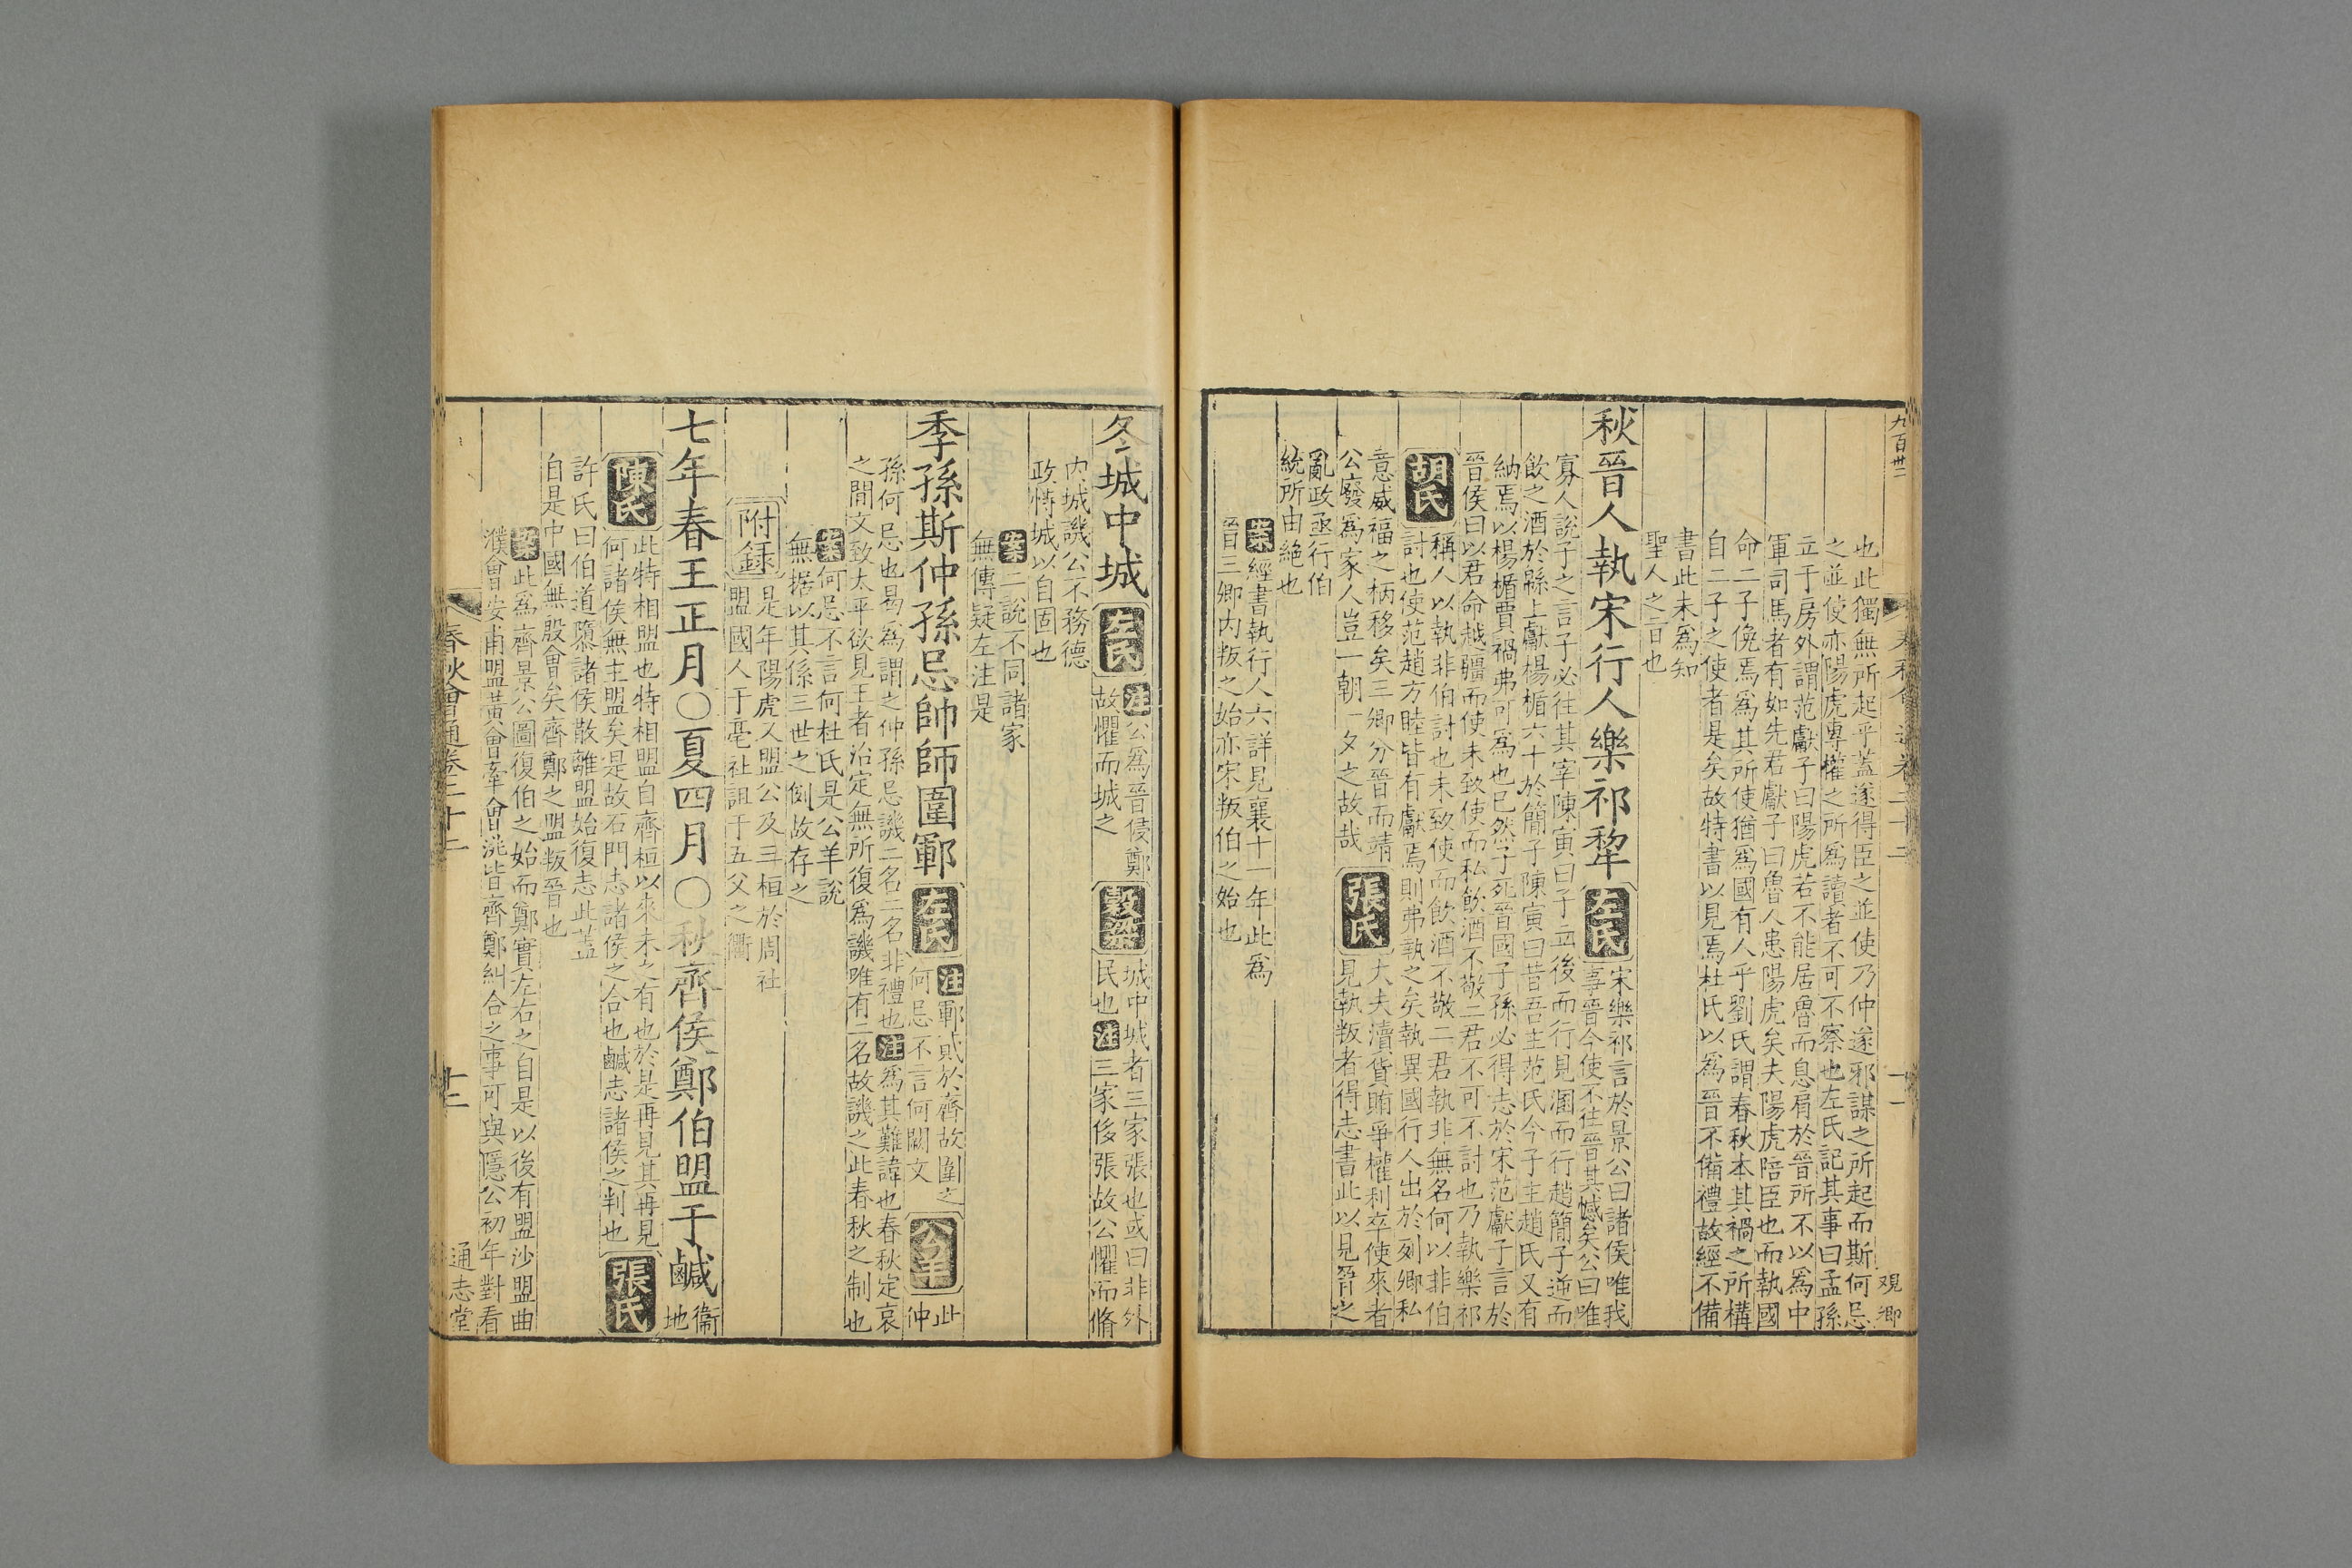 九百卅二
春秋會通卷二十三
十一
观卿
也此獨無所起乎蓋遂得臣之並使乃仲遂邪謀之所起而斯何忌
之並使亦陽虎專權之所爲讀者不可不察也左氏記其事曰孟孫
立于房外謂范獻子曰陽虎若不能居魯而息肩於晉所不以爲中
軍司馬者有如先君獻子曰魯人患陽虎矣夫陽虎陪臣也而執國
命二子俛焉爲其所使猶爲國有人乎劉氏謂春秋本其禍之所構
自二子之使者是矣故特書以見焉杜氏以爲晉不備禮故經不備
書此未爲知
聖人之言也
秋晉人執宋行人樂祁犂 左氏 宋樂祁言於景公曰諸侯唯我
事晉今使不往晉其憾矣公曰唯
寡人說子之言子必往其宰陳寅曰子立後而行見溷而行趙簡子逆而
飲之酒於緜上獻楊楯六十於簡子陳寅曰昔吾主范氏今子主趙氏又有
納焉以楊楯賈禍弗可爲也已然子死晉國子孫必得志於宋范獻子言於
晉侯曰以君命越疆而使未致使而私飲酒不敬二君不可不討也乃執樂祁
胡氏 稱人以執非伯討也未致使而飲酒不敬二君執非無名何以非伯
討也使范趙方睦皆有獻焉則弗執之矣執異國行人出於列卿私
意威福之柄移矣三卿分晉而靖
公廢爲家人豈一朝一夕之故哉 張氏 大夫瀆貨賄爭權利卒使來者
見執叛者得志書此以見晉之
亂政亟行伯
統所由絶也
案經書執行人六詳見襄十一年此爲
晉三卿内叛之始亦宋叛伯之始也
冬城中城 左氏 注公爲晉侵鄭
故懼而城之 穀梁 城中城者三家張也或曰非外
民也注三家侈張故公懼而脩
内城譏公不務德
政恃城以自固也
案二說不同諸家
無傳疑左注是
季孫斯仲孫忌帥師圍鄆 左氏 注鄆貳於齊故圍之
何忌不言何闕文 公羊 此
仲
孫何忌也曷爲謂之仲孫忌譏二名二名非禮也注爲其難諱也春秋定哀
之間文致太平欲見王者治定無所復爲譏唯有二名故譏之此春秋之制也
案何忌不言何杜氏是公羊說
無据以其係三世之例故存之
附録 是年陽虎又盟公及三桓於周社
盟國人于亳社詛于五父之衢
七年春王正月〇夏四月〇秋齊侯鄭伯盟于鹹 衞
地
陳氏 此特相盟也特相盟自齊桓以來未之有也於是再見其再見
何諸侯無主盟矣是故石門志諸侯之合也鹹志諸侯之判也 張氏
許氏曰伯道隳諸侯散離盟始復志此蓋
自是中國無殷會矣齊鄭之盟叛晉也
案此爲齊景公圖復伯之始而鄭實左右之自是以後有盟沙盟曲
濮會安甫盟黃會牽會洮皆齊鄭糾合之事可與隱公初年對看
春秋會通卷二十三
十二
通志堂